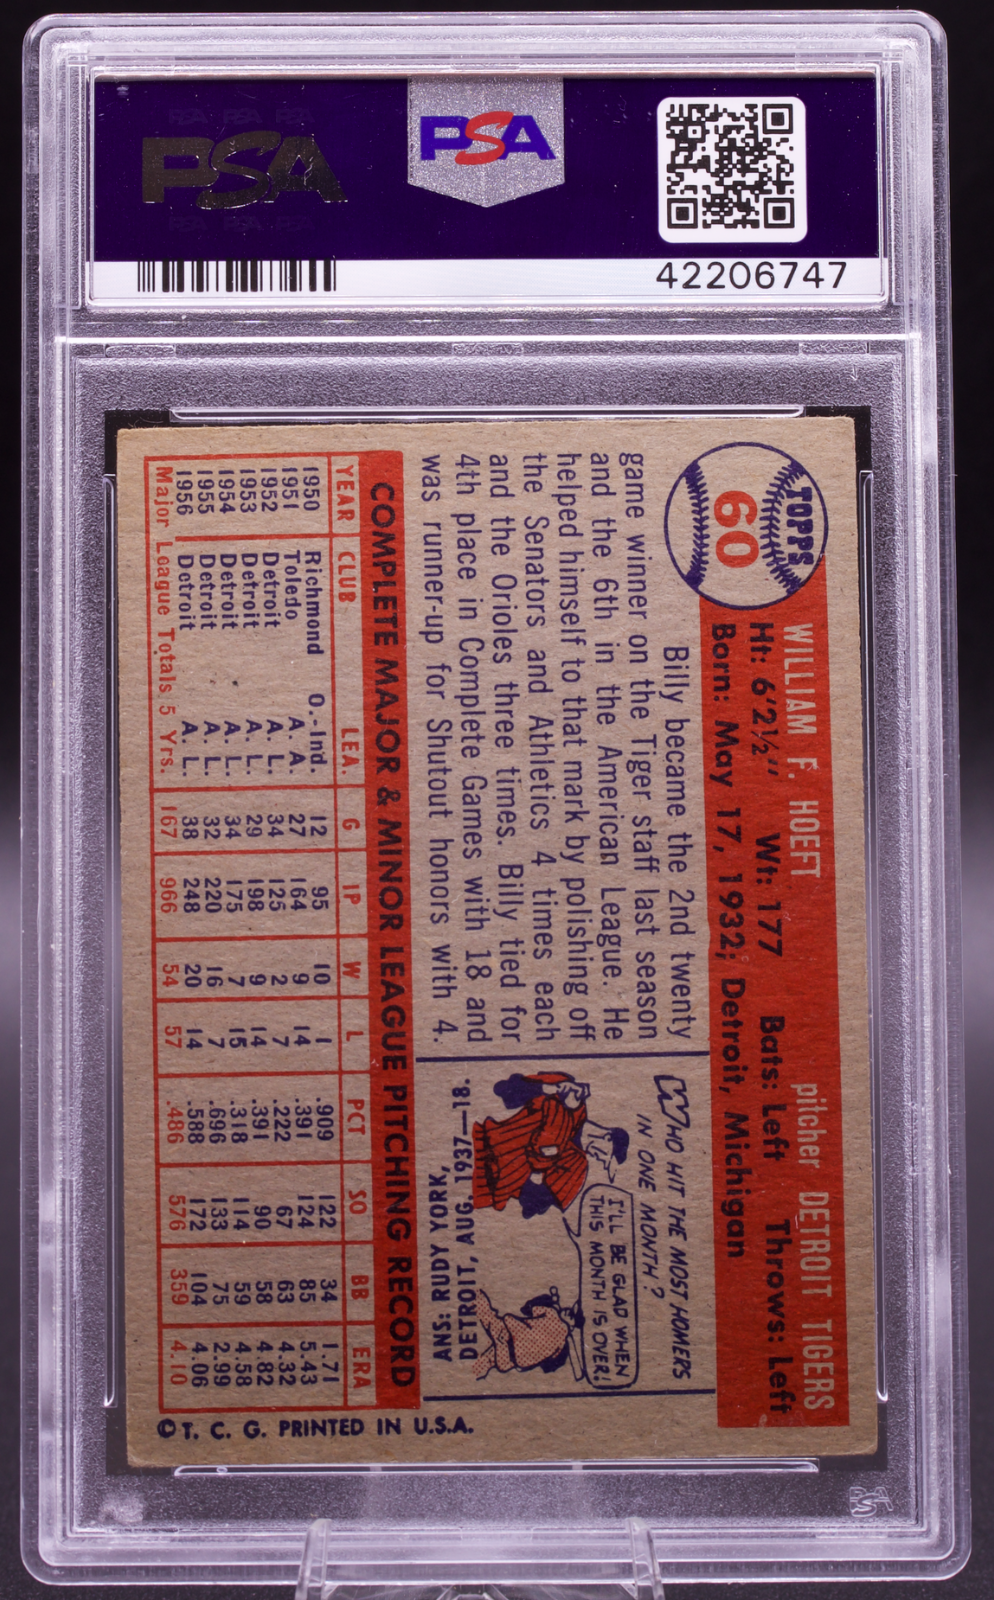 PSA
PSA
42206747
TOPPS
60
WILLIAM F. HOEFT pitcher DETROIT TIGERS
Ht: 6'2½" Wt: 177 Bats: Left Throws: Left
Born: May 17, 1932; Detroit, Michigan
Billy became the 2nd twenty
game winner on the Tiger staff last season
and the 6th in the American League. He
helped himself to that mark by polishing off
the Senators and Athletics 4 times each
and the Orioles three times. Billy tied for
4th place in Complete Games with 18 and
was runner-up for Shutout honors with 4.
WHO HIT THE MOST HOMERS
IN ONE MONTH?
I'LL BE GLAD WHEN
THIS MONTH IS OVER!
ANS: RUDY YORK,
DETROIT, AUG. 1937—18.
COMPLETE MAJOR & MINOR LEAGUE PITCHING RECORD
YEAR CLUB LEA. G IP W L PCT SO BB ERA
1950 Richmond O.-Ind. 12 95 10 1 .909 122 34 1.71
1951 Toledo A. A. 27 164 9 14 .391 124 85 5.43
1952 Detroit A. L. 34 125 2 7 .222 67 63 4.32
1953 Detroit A. L. 29 198 9 14 .391 90 58 4.82
1954 Detroit A. L. 34 175 7 15 .318 114 59 4.58
1955 Detroit A. L. 32 220 16 7 .696 133 75 2.99
1956 Detroit A. L. 38 248 20 14 .588 172 104 4.06
Major League Totals 5 Yrs. 167 966 54 57 .486 576 359 4.10
© T. C. G. PRINTED IN U.S.A.